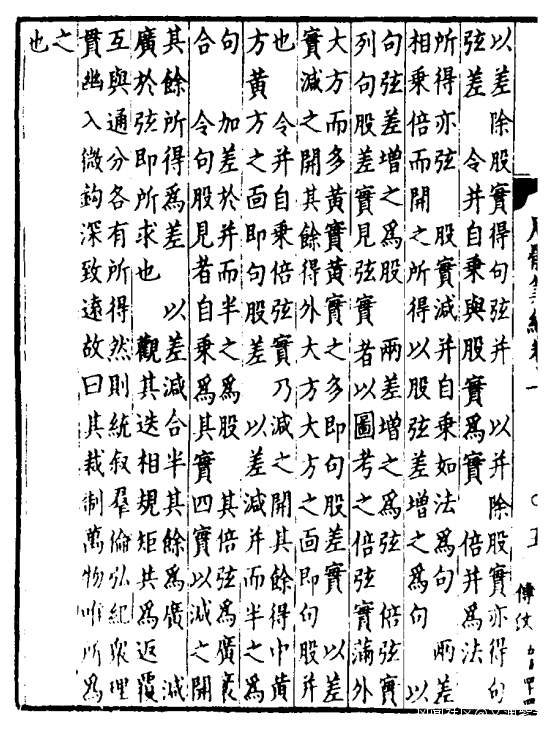 以差除股實得句弦并　以并除股實亦得句
弦差　令并自乘與股實為實　倍并為法
所得亦弦　股實減并自乘如法為句　兩差
相乘倍而開之所得以股弦差增之為句　以
句弦差增之為股　兩差增之為弦　倍弦實
列句股差實見弦實者以圖考之倍弦實滿外
大方而多黃實黃實之多即句股差實　以差
實減之開其餘得外大方大方之面即句股并
也　令并自乘倍弦實乃減之開其餘得中黃
方黃方之面即句股差　以差減并而半之為
句　加差於并而半之為股　其倍弦為廣袤
合　令句股見者自乘為其實四實以減之開
其餘所得為差　以差減合半其餘為廣　減
廣於弦即所求也　觀其迭相規矩共為返覆
互與通分各有所得然則統叙羣倫弘紀眾理
貫幽入微鈎深致遠故曰其裁制萬物唯所為
之
也